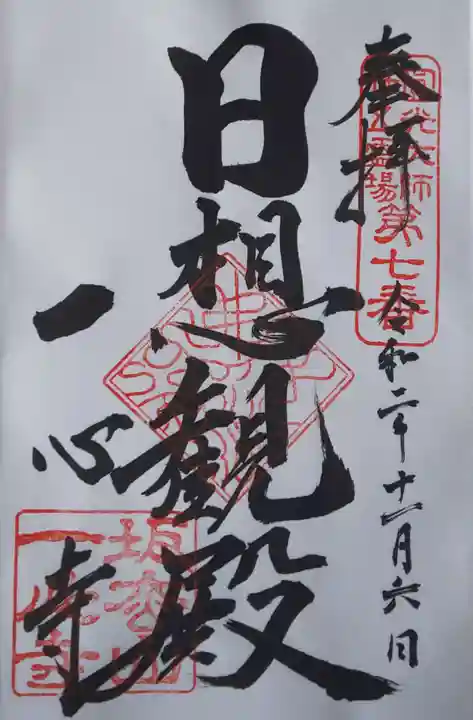 奉拝
圓光大師
霊場第七番
令和二年十一月六日
日想観殿
一心寺
坂松山
一心寺